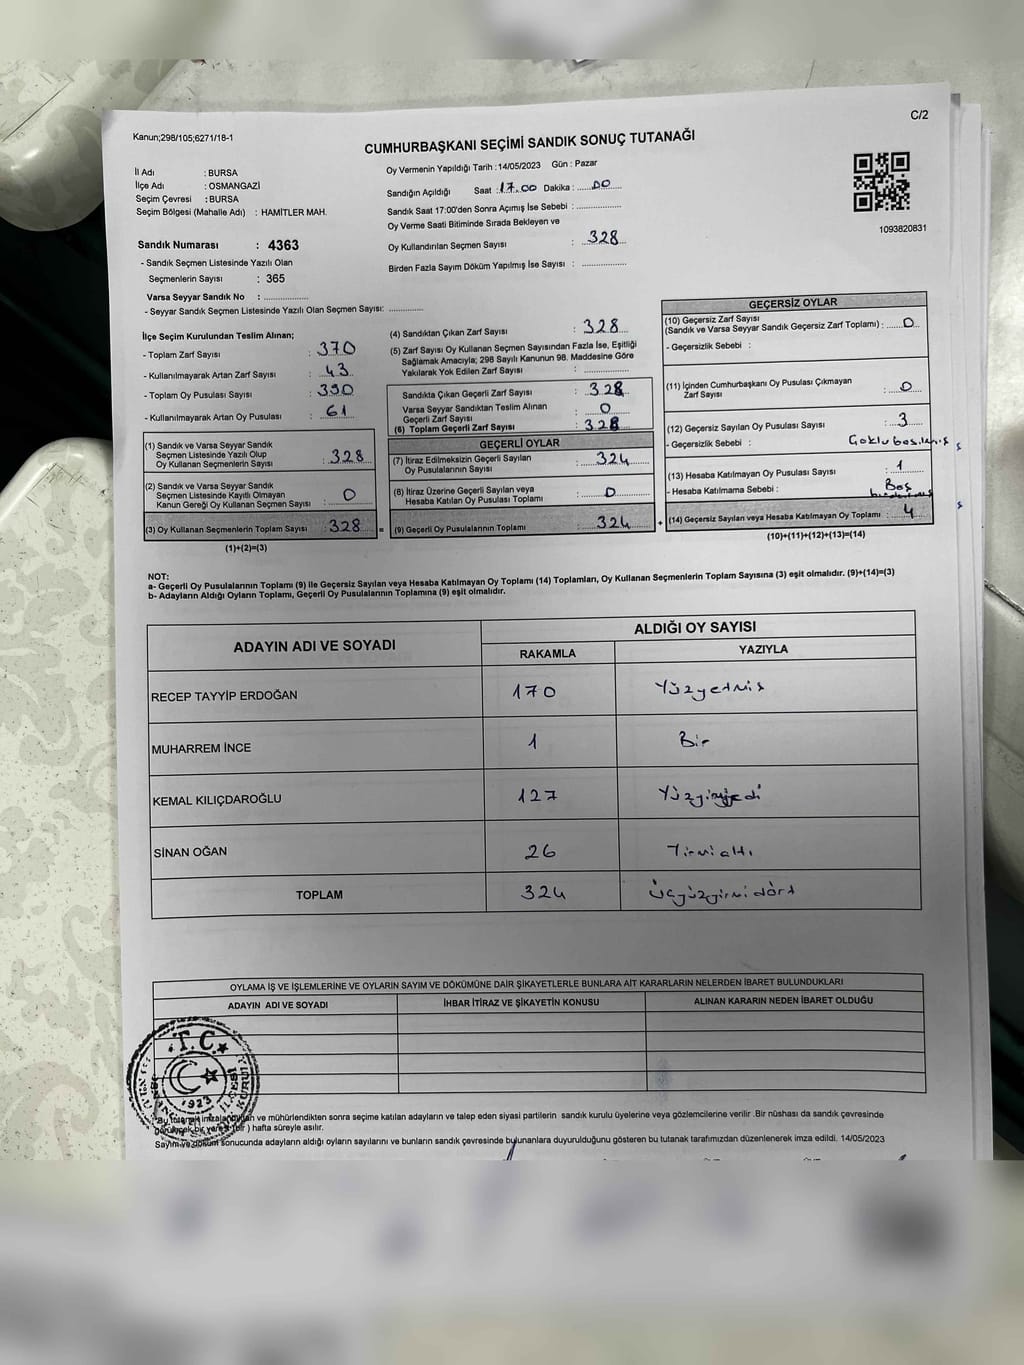 C/2
Kanun;298/105;6271/18-1
CUMHURBAŞKANI SEÇİMİ SANDIK SONUÇ TUTANAĞI
İl Adı : BURSA
İlçe Adı : OSMANGAZİ
Seçim Çevresi : BURSA
Seçim Bölgesi (Mahalle Adı) : HAMİTLER MAH.
Oy Vermenin Yapıldığı Tarih : 14/05/2023 Gün : Pazar
Sandığın Açıldığı Saat : 17.00 Dakika : 00
Sandık Saat 17:00'den Sonra Açımış İse Sebebi :
Oy Verme Saati Bitiminde Sırada Bekleyen ve
Oy Kullandırılan Seçmen Sayısı : 328
Birden Fazla Sayım Döküm Yapılmış İse Sayısı :
1093820831
Sandık Numarası : 4363
- Sandık Seçmen Listesinde Yazılı Olan
Seçmenlerin Sayısı : 365
Varsa Seyyar Sandık No :
- Seyyar Sandık Seçmen Listesinde Yazılı Olan Seçmen Sayısı:
İlçe Seçim Kurulundan Teslim Alınan;
- Toplam Zarf Sayısı : 370
- Kullanılmayarak Artan Zarf Sayısı : 43
- Toplam Oy Pusulası Sayısı : 390
- Kullanılmayarak Artan Oy Pusulası : 61
(1) Sandık ve Varsa Seyyar Sandık
Seçmen Listesinde Yazılı Olup
Oy Kullanan Seçmenlerin Sayısı : 328
(2) Sandık ve Varsa Seyyar Sandık
Seçmen Listesinde Kayıtlı Olmayan
Kanun Gereği Oy Kullanan Seçmen Sayısı : 0
(3) Oy Kullanan Seçmenlerin Toplam Sayısı : 328 =
(1)+(2)=(3)
(4) Sandıktan Çıkan Zarf Sayısı : 328
(5) Zarf Sayısı Oy Kullanan Seçmen Sayısından Fazla İse, Eşitliği
Sağlamak Amacıyla; 298 Sayılı Kanunun 98. Maddesine Göre
Yakılarak Yok Edilen Zarf Sayısı :
Sandıkta Çıkan Geçerli Zarf Sayısı : 328
Varsa Seyyar Sandıktan Teslim Alınan
Geçerli Zarf Sayısı : 0
(6) Toplam Geçerli Zarf Sayısı : 328
GEÇERLİ OYLAR
(7) İtiraz Edilmeksizin Geçerli Sayılan
Oy Pusulalarının Sayısı : 324
(8) İtiraz Üzerine Geçerli Sayılan veya
Hesaba Katılan Oy Pusulası Toplamı : 0
(9) Geçerli Oy Pusulalarının Toplamı : 324 +
GEÇERSİZ OYLAR
(10) Geçersiz Zarf Sayısı
(Sandık ve Varsa Seyyar Sandık Geçersiz Zarf Toplamı) : 0
- Geçersizlik Sebebi :
(11) İçinden Cumhurbaşkanı Oy Pusulası Çıkmayan
Zarf Sayısı : 0
(12) Geçersiz Sayılan Oy Pusulası Sayısı : 3
- Geçersizlik Sebebi :
(13) Hesaba Katılmayan Oy Pusulası Sayısı : 1
- Hesaba Katılmama Sebebi : Boş
(14) Geçersiz Sayılan veya Hesaba Katılmayan Oy Toplamı : 4
(10)+(11)+(12)+(13)=(14)
NOT:
a- Geçerli Oy Pusulalarının Toplamı (9) ile Geçersiz Sayılan veya Hesaba Katılmayan Oy Toplamı (14) Toplamları, Oy Kullanan Seçmenlerin Toplam Sayısına (3) eşit olmalıdır. (9)+(14)=(3)
b- Adayların Aldığı Oyların Toplamı, Geçerli Oy Pusulalarının Toplamına (9) eşit olmalıdır.
ADAYIN ADI VE SOYADI
ALDIĞI OY SAYISI
RAKAMLA YAZIYLA
RECEP TAYYİP ERDOĞAN 170 Yüzyetmiş
MUHARREM İNCE 1 Bir
KEMAL KILIÇDAROĞLU 127
SİNAN OĞAN 26 Yirmialtı
TOPLAM 324 Üçyüzyirmidört
OYLAMA İŞ VE İŞLEMLERİNE VE OYLARIN SAYIM VE DÖKÜMÜNE DAİR ŞİKAYETLERLE BUNLARA AİT KARARLARIN NELERDEN İBARET BULUNDUKLARI
ADAYIN ADI VE SOYADI İHBAR İTİRAZ VE ŞİKAYETİN KONUSU ALINAN KARARIN NEDEN İBARET OLDUĞU
T.C.
1923
Bu tutanak imzalandıktan ve mühürlendikten sonra seçime katılan adayların ve talep eden siyasi partilerin sandık kurulu üyelerine veya gözlemcilerine verilir .Bir nüshası da sandık çevresinde
görülecek bir yere (bir) hafta süreyle asılır.
Sayım ve döküm sonucunda adayların aldığı oyların sayılarını ve bunların sandık çevresinde bulunanlara duyurulduğunu gösteren bu tutanak tarafımızdan düzenlenerek imza edildi. 14/05/2023